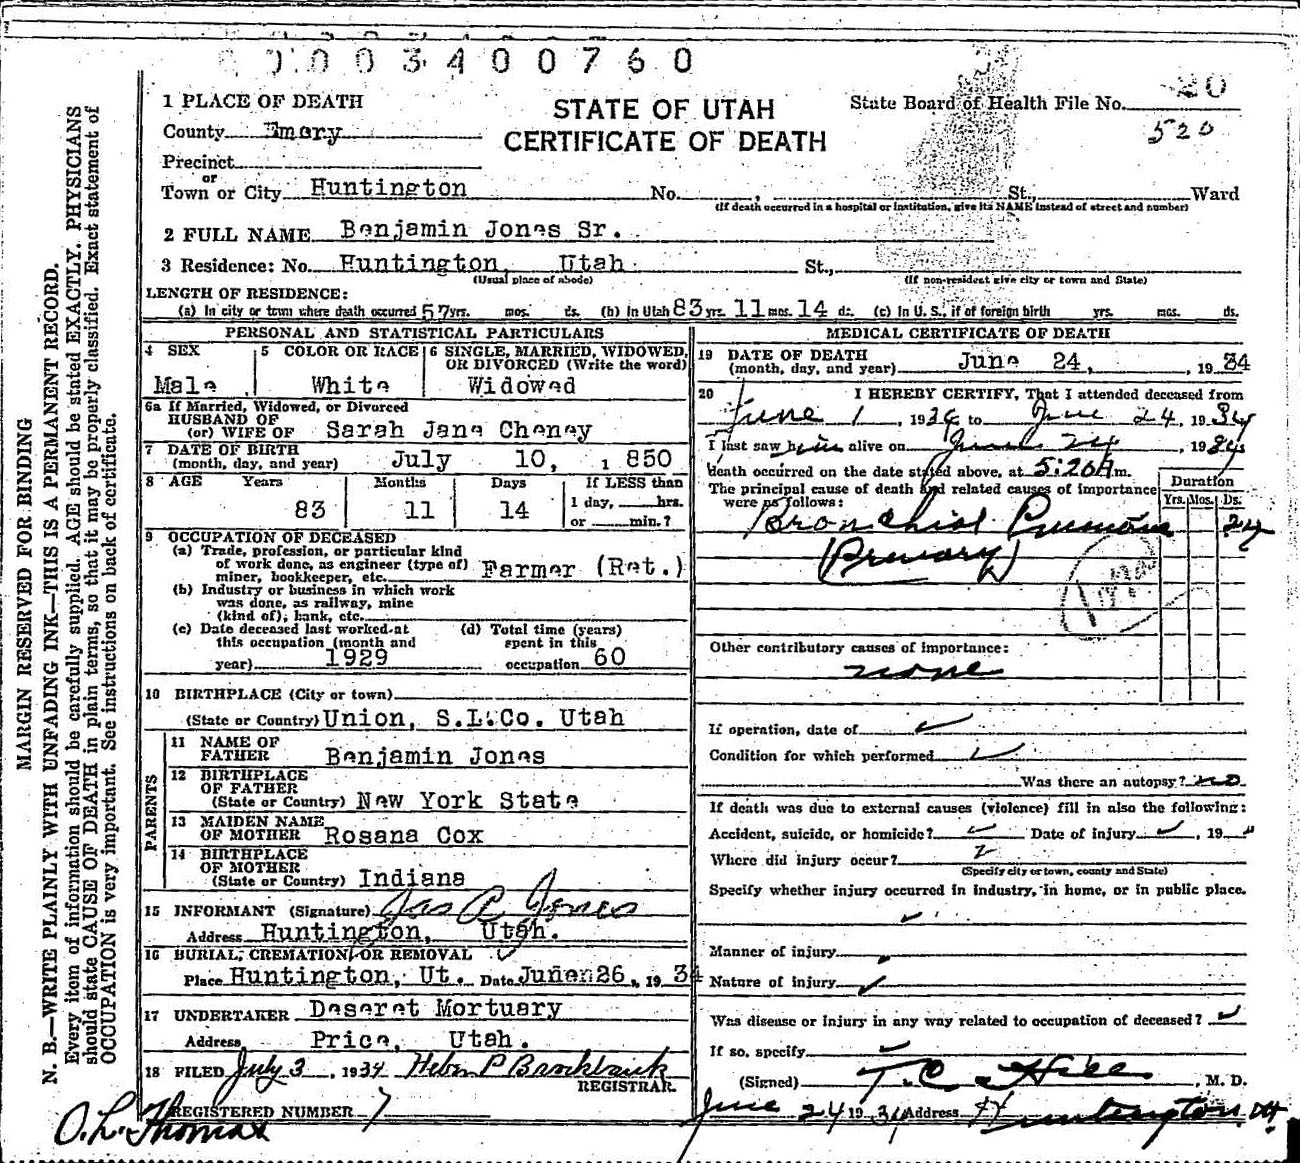 0003400760
1 PLACE OF DEATH
STATE OF UTAH
CERTIFICATE OF DEATH
State Board of Health File No. 20
520
County Emery
Precinct
or
Town or City Huntington No. , St., Ward
(If death occurred in a hospital or institution, give its NAME instead of street and number)
2 FULL NAME Benjamin Jones Sr.
3 Residence: No. Huntington, Utah St.,
(Usual place of abode) (If non-resident give city or town and State)
LENGTH OF RESIDENCE:
(a) In city or town where death occurred 57 yrs. mos. ds. (b) In Utah 83 yrs. 11 mos. 14 ds. (c) In U. S., if of foreign birth yrs. mos. ds.
PERSONAL AND STATISTICAL PARTICULARS
4 SEX
Male
5 COLOR OR RACE
White
6 SINGLE, MARRIED, WIDOWED, OR DIVORCED (Write the word)
Widowed
6a If Married, Widowed, or Divorced
HUSBAND OF
(or) WIFE OF Sarah Jane Cheney
7 DATE OF BIRTH
(month, day, and year) July 10, 1850
8 AGE Years Months Days If LESS than
83 11 14 1 day, hrs.
or min.?
9 OCCUPATION OF DECEASED
(a) Trade, profession, or particular kind
of work done, as engineer (type of)
miner, bookkeeper, etc. Farmer (Ret.)
(b) Industry or business in which work
was done, as railway, mine
(kind of); bank, etc.
(c) Date deceased last worked at
this occupation (month and
year) 1929
(d) Total time (years)
spent in this
occupation 60
10 BIRTHPLACE (City or town)
(State or Country) Union, S.L.Co. Utah
PARENTS
11 NAME OF
FATHER Benjamin Jones
12 BIRTHPLACE
OF FATHER
(State or Country) New York State
13 MAIDEN NAME
OF MOTHER Rosana Cox
14 BIRTHPLACE
OF MOTHER
(State or Country) Indiana
15 INFORMANT (Signature) Jas C Jones
Address Huntington, Utah.
16 BURIAL, CREMATION OR REMOVAL
Place Huntington, Ut. Date June 26, 1934
17 UNDERTAKER Deseret Mortuary
Address Price, Utah.
18 FILED July 3, 1934 Heber P Brockbank
REGISTRAR
REGISTERED NUMBER 7
O. L. Thomas
MEDICAL CERTIFICATE OF DEATH
19 DATE OF DEATH
(month, day, and year) June 24, , 1934
20 I HEREBY CERTIFY, That I attended deceased from
June 1, 1934 to June 24, 1934
I last saw him alive on June 24, 1934
death occurred on the date stated above, at 5:20 A m.
The principal cause of death and related causes of importance
were as follows:
Duration
Yrs. Mos. Ds.
Bronchial 24
Other contributory causes of importance:
none
If operation, date of
Condition for which performed
Was there an autopsy? no
If death was due to external causes (violence) fill in also the following:
Accident, suicide, or homicide? Date of injury , 19
Where did injury occur?
(Specify city or town, county and State)
Specify whether injury occurred in industry, in home, or in public place.
Manner of injury
Nature of injury
Was disease or injury in any way related to occupation of deceased?
If so, specify
(Signed) T. C. Hill , M. D.
June 24 1934 Address Huntington, Ut.
MARGIN RESERVED FOR BINDING
N. B.—WRITE PLAINLY WITH UNFADING INK—THIS IS A PERMANENT RECORD.
Every item of information should be carefully supplied. AGE should be stated EXACTLY. PHYSICIANS
should state CAUSE OF DEATH in plain terms, so that it may be properly classified. Exact statement of
OCCUPATION is very important. See instructions on back of certificate.